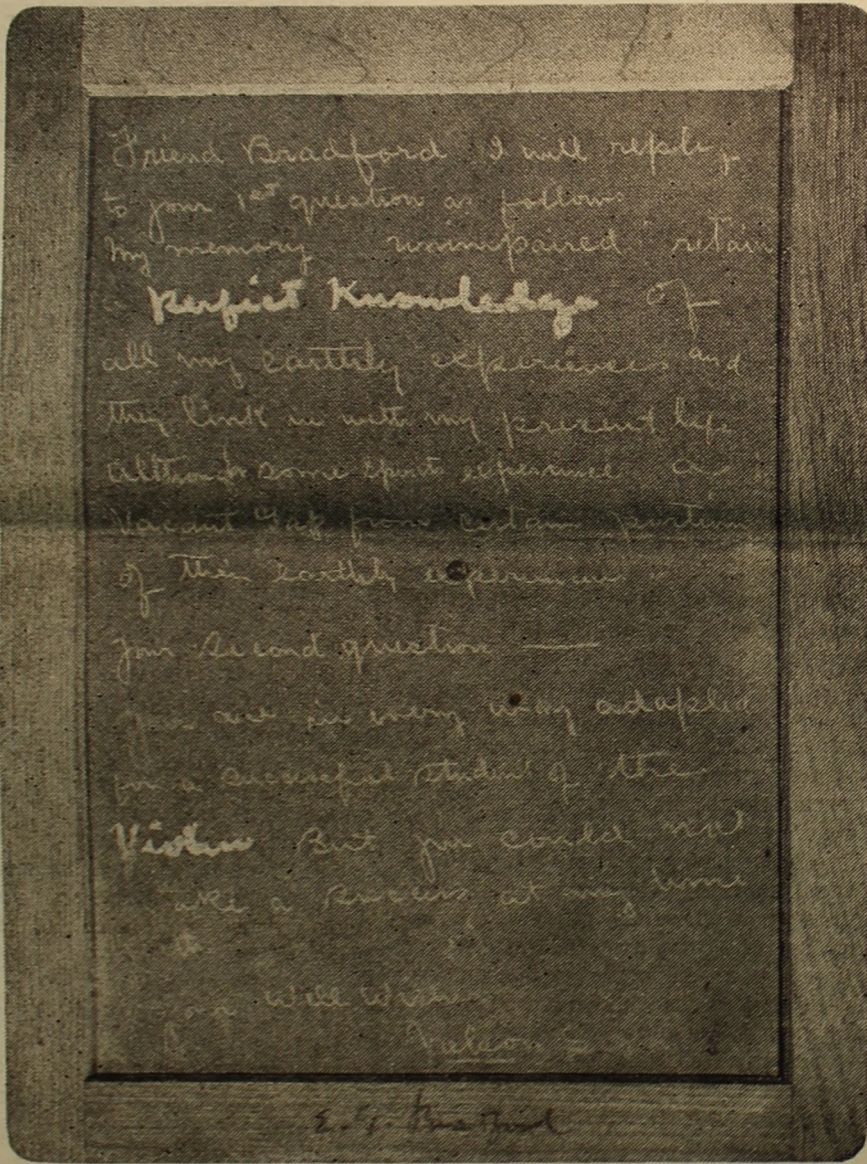 Friend Bradford I will reply
to your 1st question as follows
My memory unimpaired retain
a Perfect Knowledge of
all my earthly experiences and
they link in with my present life
Although some spirits experience a
Vacant Gap from certain portions
of their earthly experiences
your second question —
you are in every way adapted
for a successful student of the
Violin But you could not
make a success at my time
Your Well Wisher
Nelson